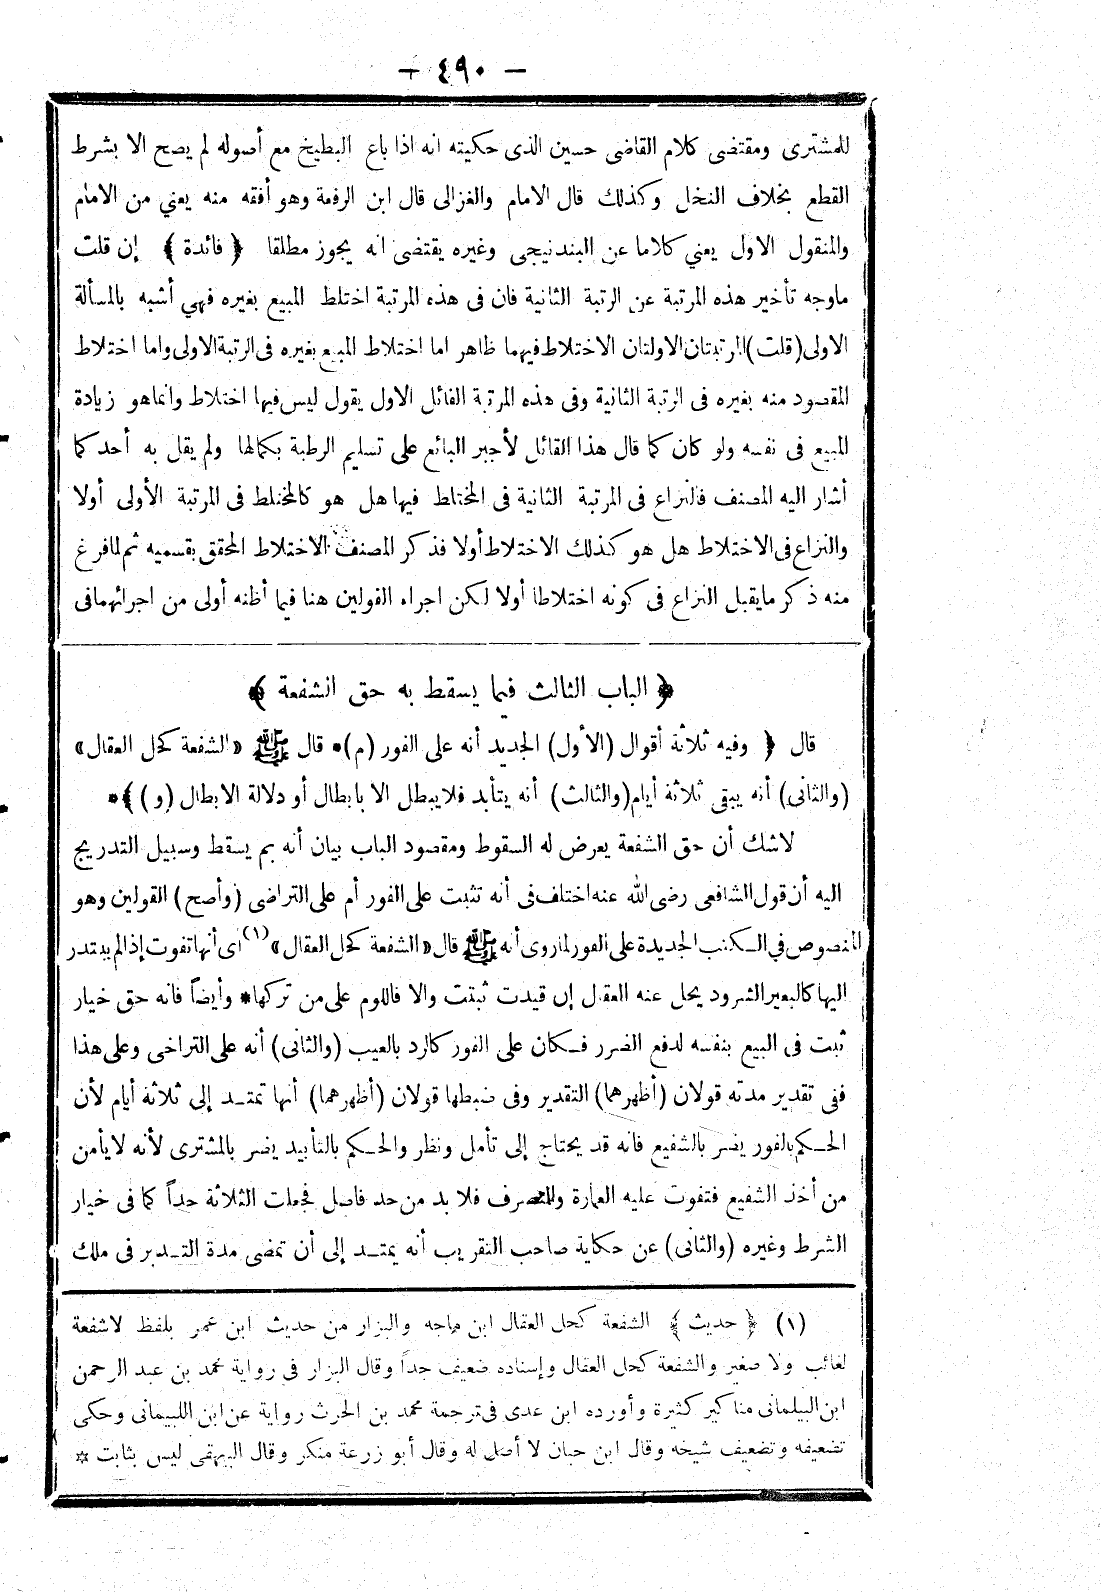 — ٤٩٠ —
للمشترى ومقتضى كلام القاضى حسين الذى حكيته انه اذا باع البطيخ مع أصوله لم يصح الا بشرط
القطع بخلاف النخل وكذلك قال الامام والغزالى قال ابن الرفعة وهو أفقه منه يعني من الامام
والمنقول الاول يعني كلاما عن البندنيجى وغيره يقتضى انه يجوز مطلقا ﴿ فائدة ﴾ إن قلت
ماوجه تأخير هذه المرتبة عن الرتبة الثانية فان فى هذه المرتبة اختلط المبيع بغيره فهي أشبه بالمسألة
الاولى (قلت) المرتبتان الاولتان الاختلاط فيهما ظاهر اما اختلاط المبيع بغيره فى الرتبة الاولى واما اختلاط
المقصود منه بغيره فى الرتبة الثانية وفى هذه المرتبة القائل الاول يقول ليس فيها اختلاط وانماهو زيادة
المبيع فى نفسه ولو كان كما قال هذا القائل لأجبر البائع على تسليم الرطبة بكمالها ولم يقل به أحد كما
أشار اليه المصنف فالنزاع فى المرتبة الثانية فى المختلط فيها هل هو كالمختلط فى المرتبة الأولى أولا
والنزاع فى الاختلاط هل هو كذلك الاختلاط أولا فذكر المصنف الاختلاط المحقق بقسميه ثم لما فرغ
منه ذكر ما يقبل النزاع فى كونه اختلاطا أولا لكن اجراء القولين هنا فيما أظنه أولى من اجرائهما فى
﴿ الباب الثالث فيما يسقط به حق الشفعة ﴾
قال ﴿ وفيه ثلاثة أقوال (الأول) الجديد أنه على الفور (م)* قال ﷺ «الشفعة كحل العقال»
(والثانى) أنه يبقى ثلاثة أيام (والثالث) أنه يتأبد فلا يبطل الا بابطال أو دلالة الابطال (و) ﴾*
لاشك أن حق الشفعة يعرض له السقوط ومقصود الباب بيان أنه بم يسقط وسبيل التدريج
اليه أن قول الشافعى رضى الله عنه اختلف فى أنه تثبت على الفور أم على التراضى (وأصح) القولين وهو
المنصوص في الكتب الجديدة على الفور لما روى أنه ﷺ قال «الشفعة كحل العقال» (١) اى أنها تفوت إذا لم يبتدر
اليها كالبعير الشرود يحل عنه العقال إن قيدت ثبتت والا فاللوم على من تركها* وأيضاً فانه حق خيار
ثبت فى البيع بنفسه لدفع الضرر فكان على الفور كالرد بالعيب (والثانى) أنه على التراخى وعلى هذا
ففى تقدير مدته قولان (أظهرهما) التقدير وفى ضبطها قولان (أظهرهما) أنها تمتد إلى ثلاثة أيام لأن
الحكم بالفور يضر بالشفيع فانه قد يحتاج إلى تأمل ونظر والحكم بالتأبيد يضر بالمشترى لأنه لا يأمن
من أخذ الشفيع فتفوت عليه العمارة والتصرف فلا بد من حد فاصل فجعلت الثلاثة حداً كما فى خيار
الشرط وغيره (والثانى) عن حكاية صاحب التقريب أنه يمتد إلى أن تمضى مدة التدبر فى ملك
(١) ﴿ حديث ﴾ الشفعة كحل العقال ابن ماجه والبزار من حديث ابن عمر بلفظ لا شفعة
لغائب ولا صغير والشفعة كحل العقال وإسناده ضعيف جداً وقال البزار فى رواية محمد بن عبد الرحمن
ابن البيلمانى مناكير كثيرة وأورده ابن عدى فى ترجمة محمد بن الحرث رواية عن ابن اللبيمانى وحكى
تضعيفه وتضعيف شيخه وقال ابن حبان لا أصل له وقال أبو زرعة منكر وقال البيهقى ليس بثابت *